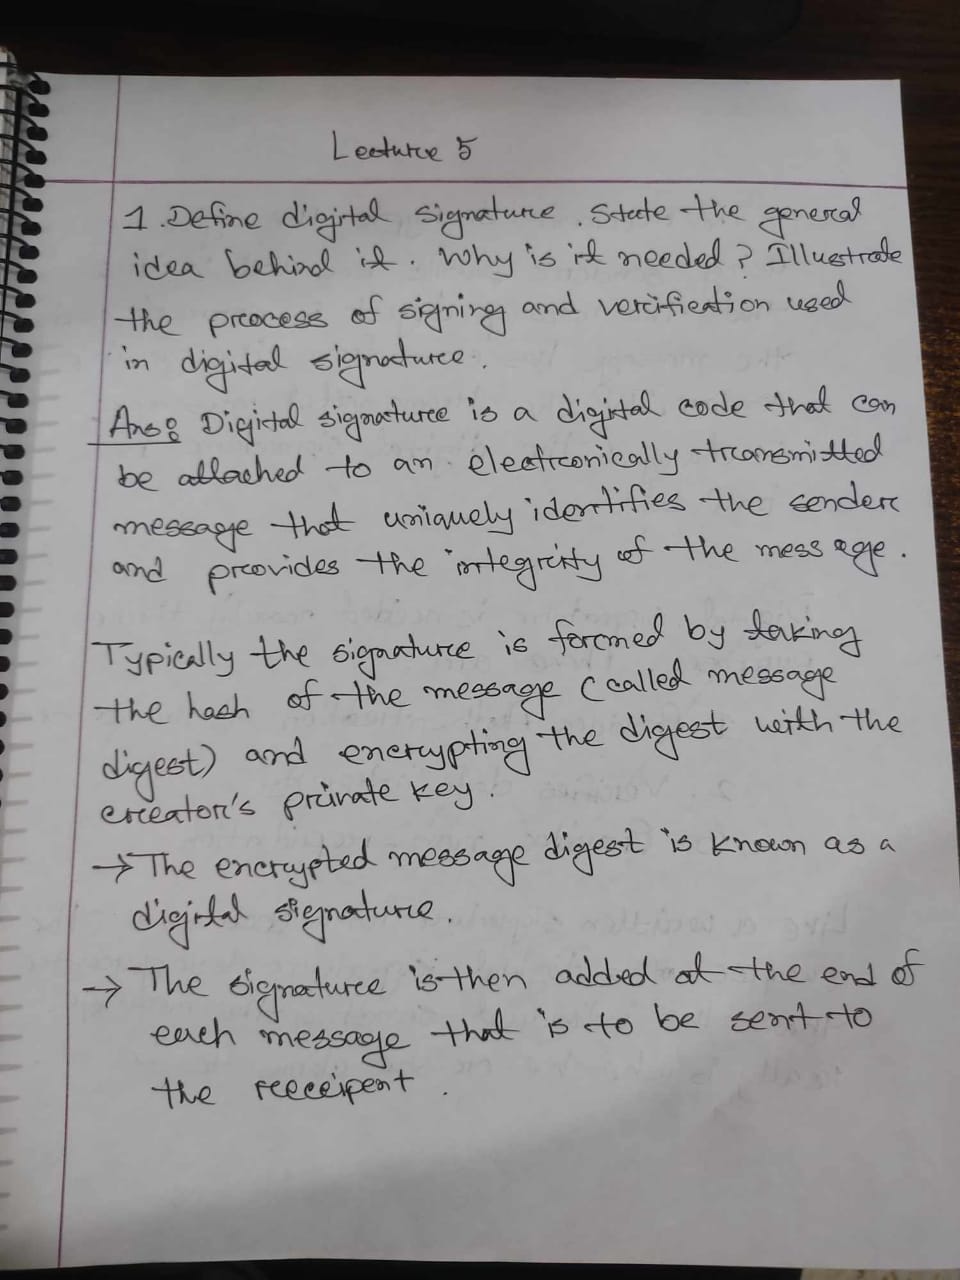 Lecture 5
1. Define digital signature. State the general
idea behind it. Why is it needed? Illustrate
the process of signing and verification used
in digital signature.
Ans: Digital signature is a digital code that can
be attached to an electronically transmitted
message that uniquely identifies the sender
and provides the integrity of the message.
Typically the signature is formed by taking
the hash of the message (called message
digest) and encrypting the digest with the
creator's private key.
→ The encrypted message digest is known as a
digital signature.
→ The signature is then added at the end of
each message that is to be sent to
the receeipent.